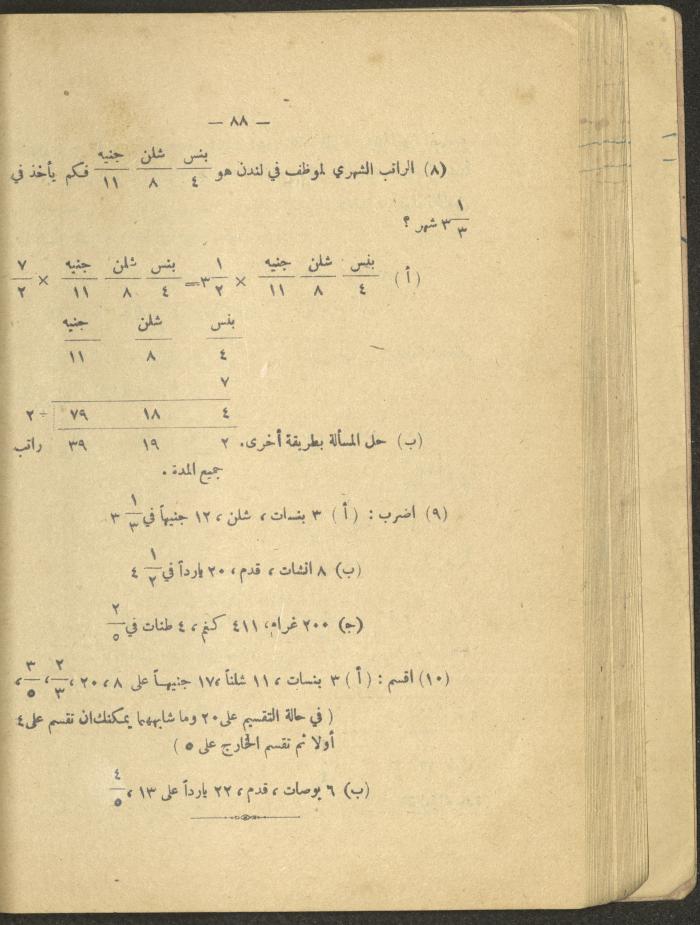 — ٨٨ —
(٨) الراتب الشهري لموظف في لندن هو بنس/٤ شلن/٨ جنيه/١١ فكم يأخذ في
٣ ١/٣ شهر ؟
(أ) بنس/٤ شلن/٨ جنيه/١١ × ٣ ١/٢ = بنس/٤ شلن/٨ جنيه/١١ × ٧/٢
بنس شلن جنيه
٤ ٨ ١١
٧
٤ ١٨ ٧٩ ÷ ٢
(ب) حل المسألة بطريقة أخرى. ٢ ١٩ ٣٩ راتب
جميع المدة .
(٩) اضرب : (أ) ٣ بنسات ، شلن ، ١٢ جنيهاً في ٣ ١/٣
(ب) ٨ انشات ، قدم ، ٢٠ يارداً في ٤ ١/٢
(ج) ٢٠٠ غرام ، ٤١١ كغم ، ٤ طنات في ٢/٥
(١٠) اقسم : (أ) ٣ بنسات ، ١١ شلناً ، ١٧ جنيهـاً على ٨ ، ٢٠ ، ٢/٣ ، ٣/٥ ،
( في حالة التقسيم على ٢٠ وما شابهها يمكنك ان تقسم على ٤
أولا ثم تقسم الخارج على ٥ )
(ب) ٦ بوصات ، قدم ، ٢٢ يارداً على ١٣ ، ٤/٥